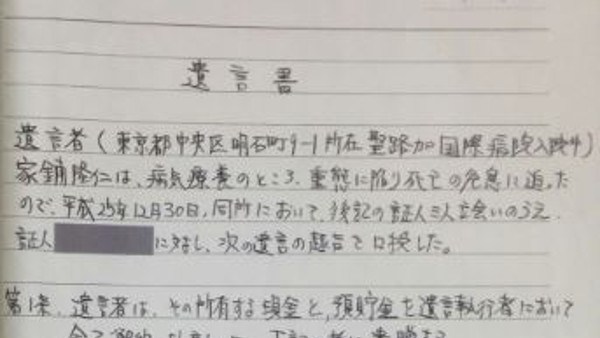 遺言書
遺言者(東京都中央区明石町9-1所在聖路加国際病院入院中)
家鋪隆仁は、病気療養のところ、重態に陥り死亡の危急に迫った
ので、平成25年12月30日、同所において、後記の証人三人立会いのうえ、
証人 に対し、次の遺言の趣旨を口授した。
第1条、遺言者は、その所有する現金と、預貯金を遺言執行者において
全て